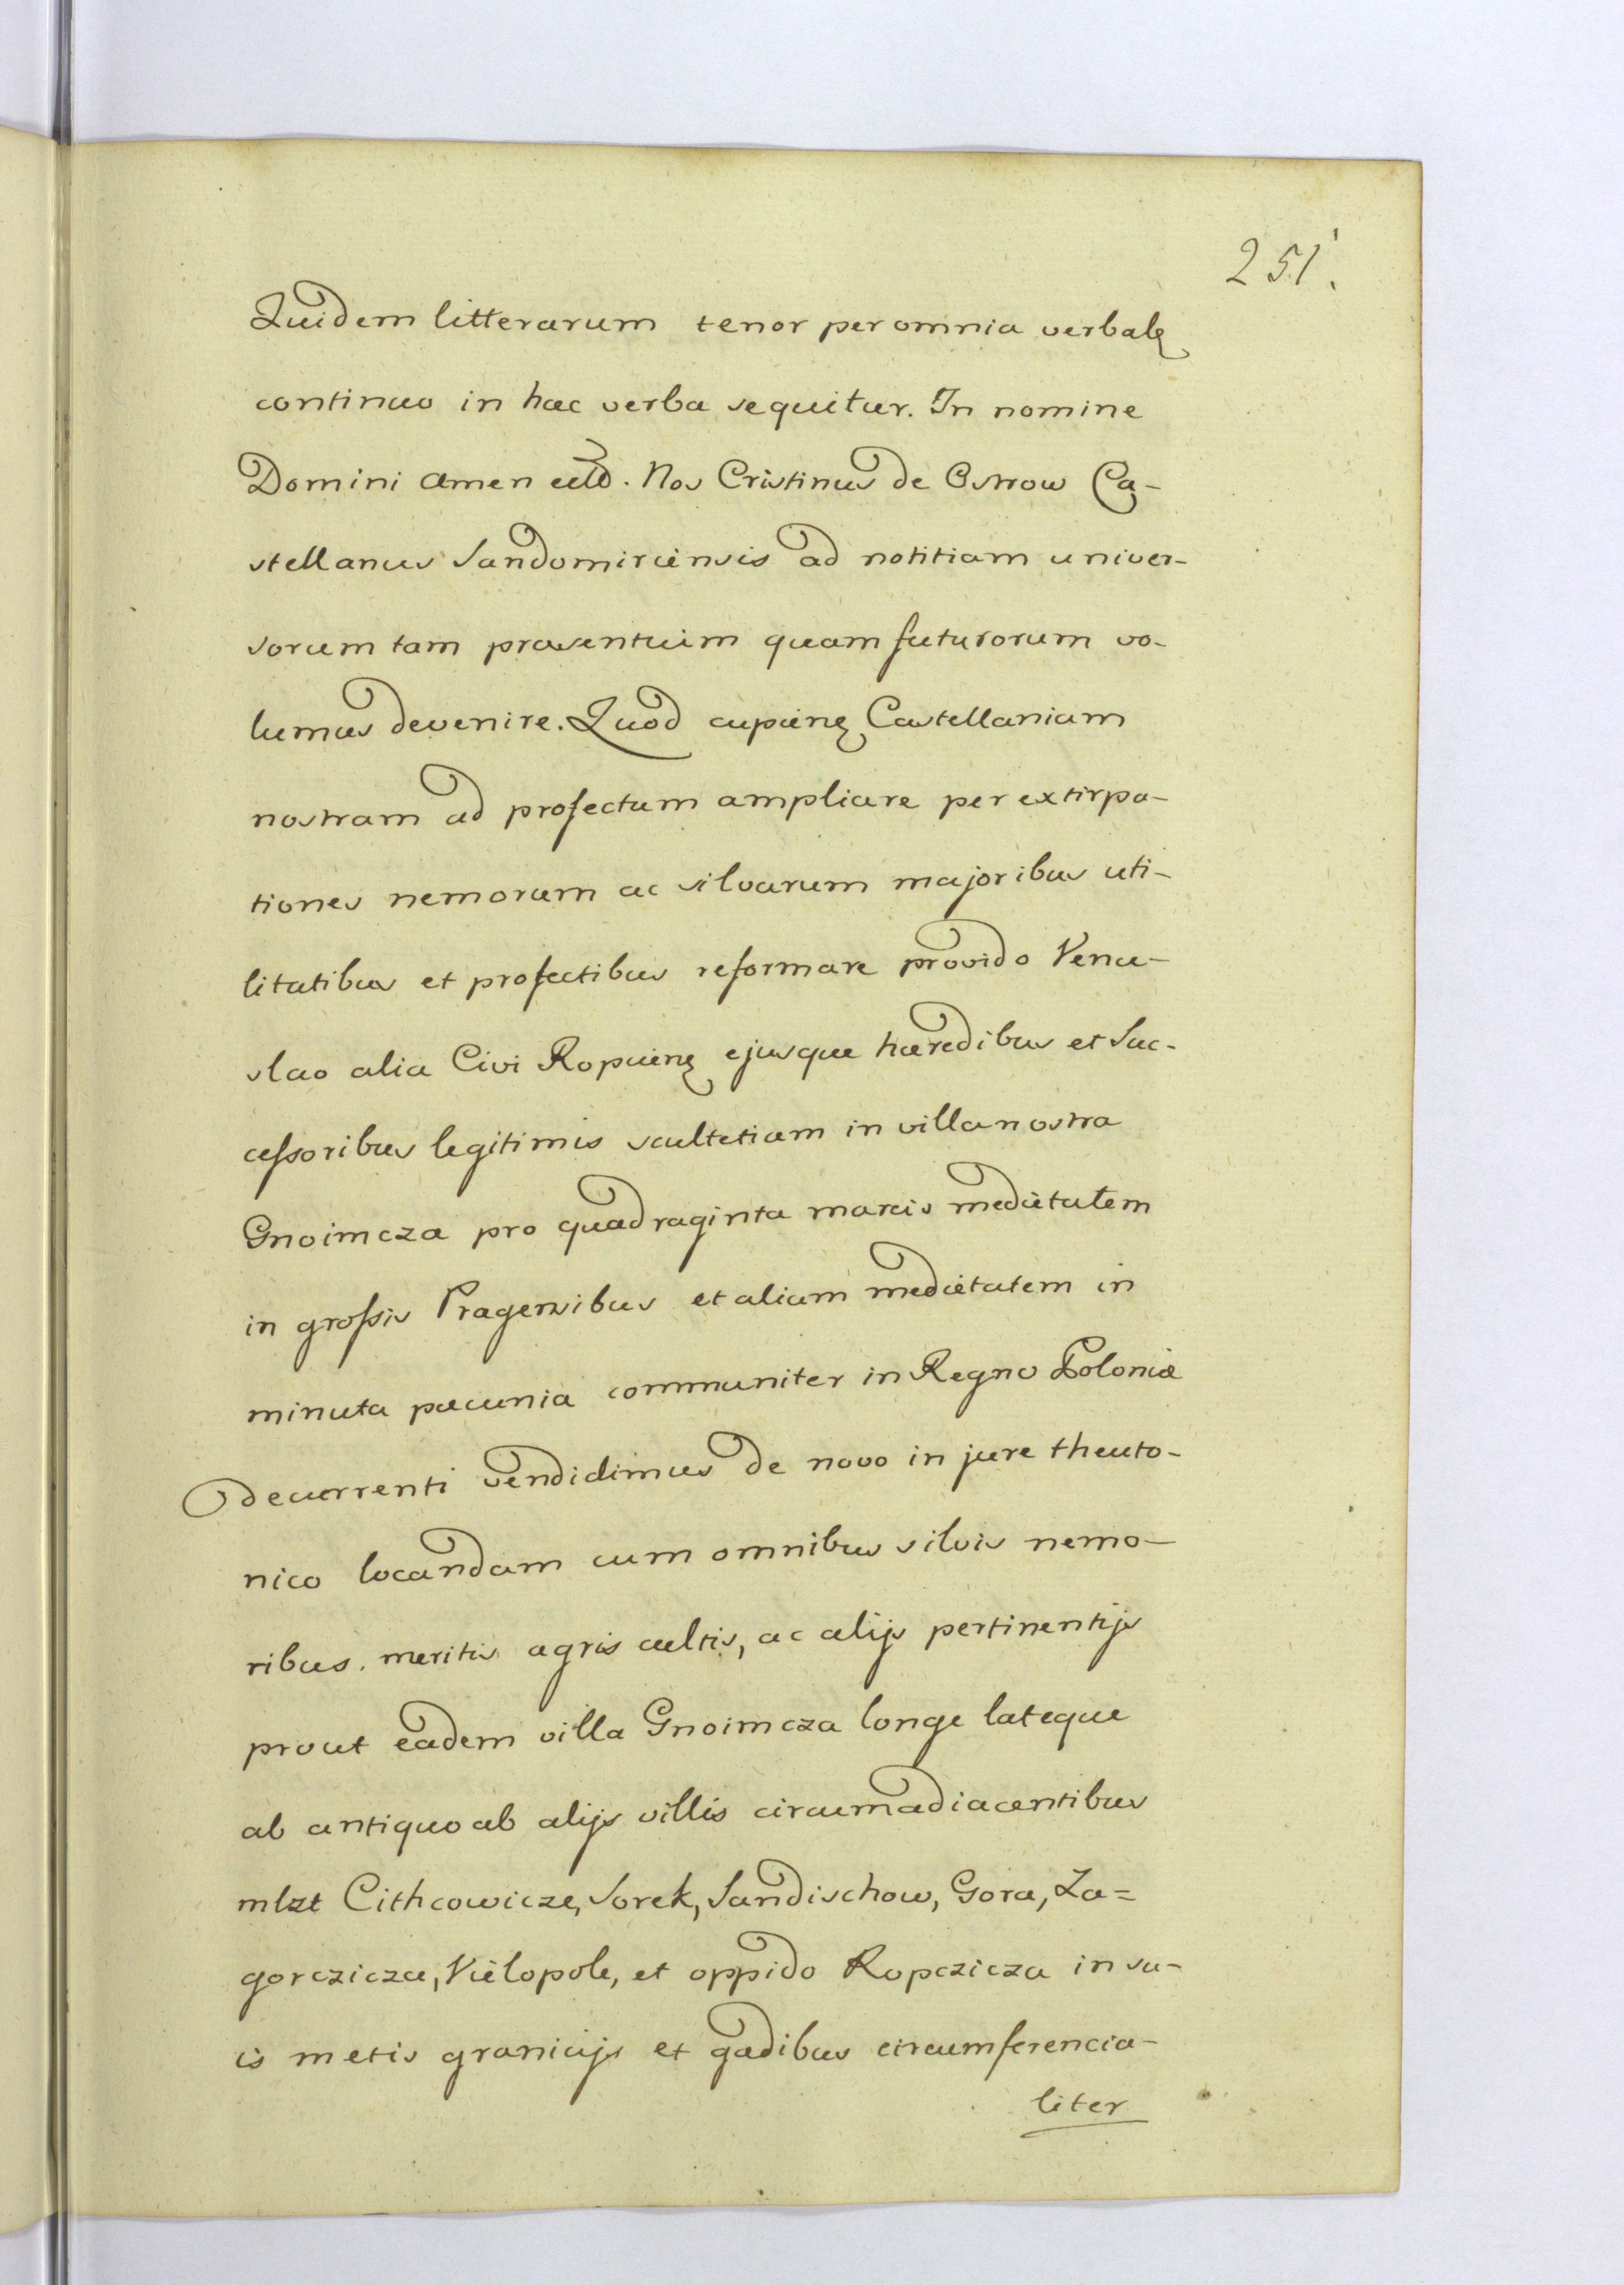 251.
Quidem litterarum tenor per omnia verbalę
continuo in hæc verba sequitur. In nomine
Domini Amen. Nos Cristinus de Ostrow Ca-
stellanus Sandomiriensis ad notitiam univer-
sorum tam præsentium quam futurorum vo-
lumus devenire. Quod cupienę Castellaniam
nostram ad profectum ampliare per extirpa-
tiones nemorum ac silvarum majoribus uti-
litatibus et profectibus reformare provido Vence-
slao alia Civi Ropcienę ejusque hæredibus et Suc-
cessoribus legitimis scultetiam in villa nostra
Gnoimcza pro quadraginta marcis medietatem
in grossis Pragensibus et aliam medietatem in
minuta pæcunia communiter in Regno Poloniæ
decurrenti vendidimus de novo in jure theuto-
nico locandam cum omnibus silvis nemo-
ribus. meritis agris cultis, ac alijs pertinentijs
prout eadem villa Gnoimcza longe lateque
ab antiquo ab alijs villis circumadiacentibus
mlzt Cithcowicze, Sorek, Sandischow, Gora, Za=
gorczicze, Vielopole, et oppido Ropczicza in su-
is metis granicijs et gadibus circumferencia-
liter